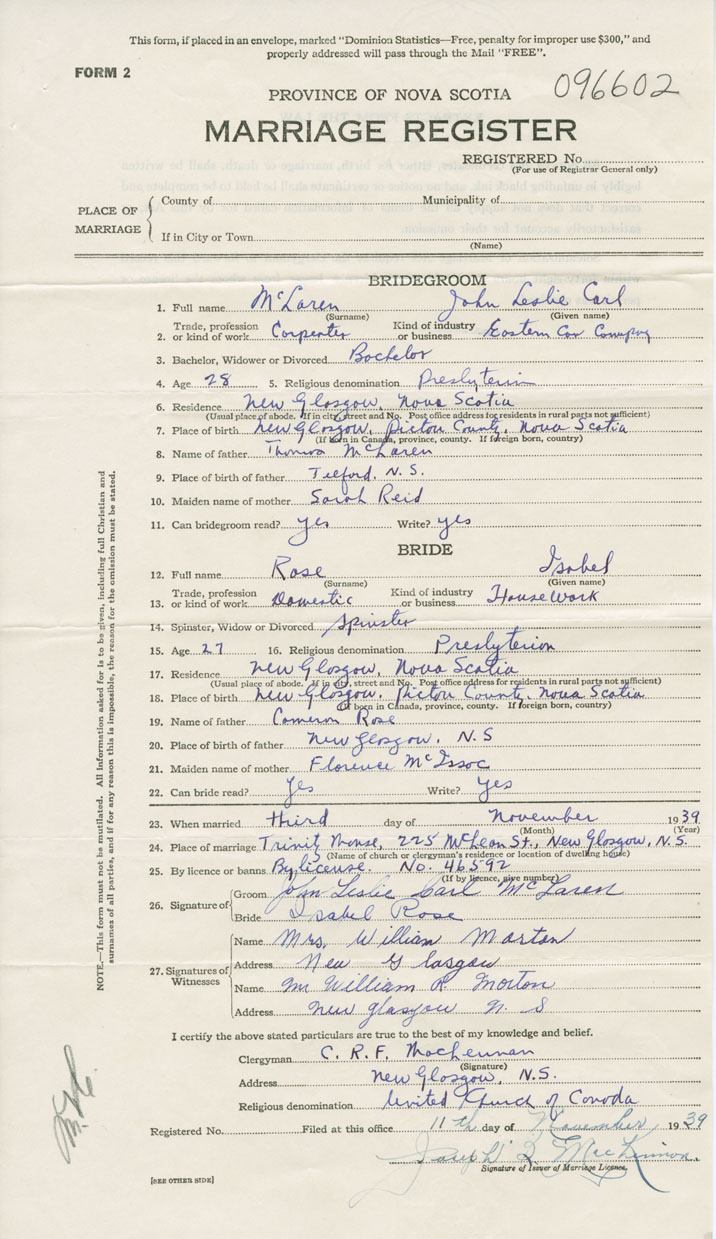 This form, if placed in an envelope, marked "Dominion Statistics—Free, penalty for improper use $300," and
properly addressed will pass through the Mail "FREE".
FORM 2
096602
PROVINCE OF NOVA SCOTIA
MARRIAGE REGISTER
REGISTERED No.
(For use of Registrar General only)
PLACE OF MARRIAGE
County of Municipality of
If in City or Town
(Name)
BRIDEGROOM
1. Full name McLaren John Leslie Carl
(Surname) (Given name)
2. Trade, profession or kind of work Carpenter Kind of industry or business Eastern Car Company
3. Bachelor, Widower or Divorced Bachelor
4. Age 28 5. Religious denomination Presbyterian
6. Residence New Glasgow, Nova Scotia
(Usual place of abode. If in city, street and No. Post office address for residents in rural parts not sufficient)
7. Place of birth New Glasgow, Pictou County, Nova Scotia
(If born in Canada, province, county. If foreign born, country)
8. Name of father Thomas McLaren
9. Place of birth of father Telford, N.S.
10. Maiden name of mother Sarah Reid
11. Can bridegroom read? yes Write? yes
BRIDE
12. Full name Rose Isabel
(Surname) (Given name)
13. Trade, profession or kind of work Domestic Kind of industry or business HouseWork
14. Spinster, Widow or Divorced Spinster
15. Age 27 16. Religious denomination Presbyterian
17. Residence New Glasgow, Nova Scotia
(Usual place of abode. If in city, street and No. Post office address for residents in rural parts not sufficient)
18. Place of birth New Glasgow, Pictou County, Nova Scotia
(If born in Canada, province, county. If foreign born, country)
19. Name of father Cameron Rose
20. Place of birth of father New Glasgow, N.S
21. Maiden name of mother Florence McIssac
22. Can bride read? Yes Write? Yes
23. When married third day of November 1939
(Month) (Year)
24. Place of marriage Trinity Manse, 225 McLean St., New Glasgow, N.S.
(Name of church or clergyman's residence or location of dwelling house)
25. By licence or banns By license. No. 46592
(If by licence, give number)
26. Signature of
Groom John Leslie Carl McLaren
Bride Isabel Rose
27. Signatures of Witnesses
Name Mrs. William Morton
Address New Glasgow
Name Mr William R. Morton
Address New Glasgow N. S
I certify the above stated particulars are true to the best of my knowledge and belief.
Clergyman C. R. F. MacLennan
(Signature)
Address New Glasgow, N.S.
Religious denomination United Church of Canada
Registered No. Filed at this office 11th day of November 1939
MacKinnon
Signature of Issuer of Marriage Licence.
[SEE OTHER SIDE]
NOTE.—This form must not be mutilated. All information asked for is to be given, including full Christian and
surnames of all parties, and if for any reason this is impossible, the reason for the omission must be stated.